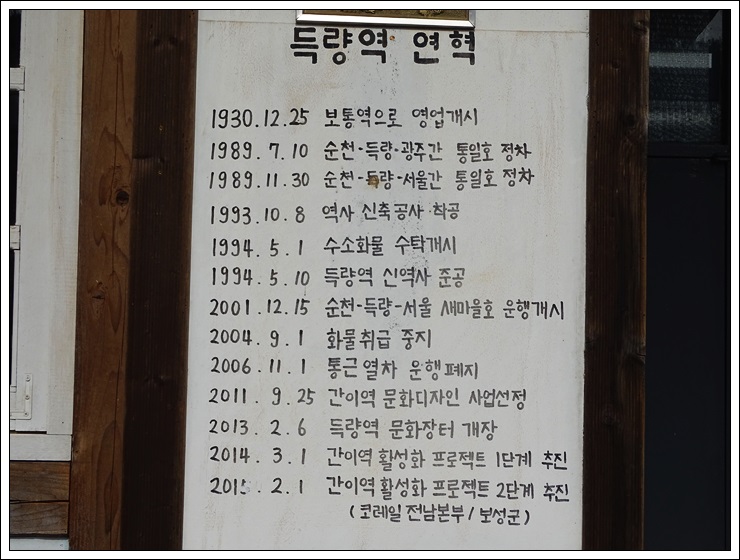 득량역 연혁
1930.12.25 보통역으로 영업개시
1989.7.10 순천-득량-광주간 통일호 정차
1989.11.30 순천-득량-서울간 통일호 정차
1993.10.8 역사 신축공사 착공
1994.5.1 수소화물 수탁개시
1994.5.10 득량역 신역사 준공
2001.12.15 순천-득량-서울 새마을호 운행개시
2004.9.1 화물취급 중지
2006.11.1 통근열차 운행폐지
2011.9.25 간이역 문화디자인 사업선정
2013.2.6 득량역 문화장터 개장
2014.3.1 간이역 활성화 프로젝트 1단계 추진
2015.2.1 간이역 활성화 프로젝트 2단계 추진
(코레일 전남본부/보성군)